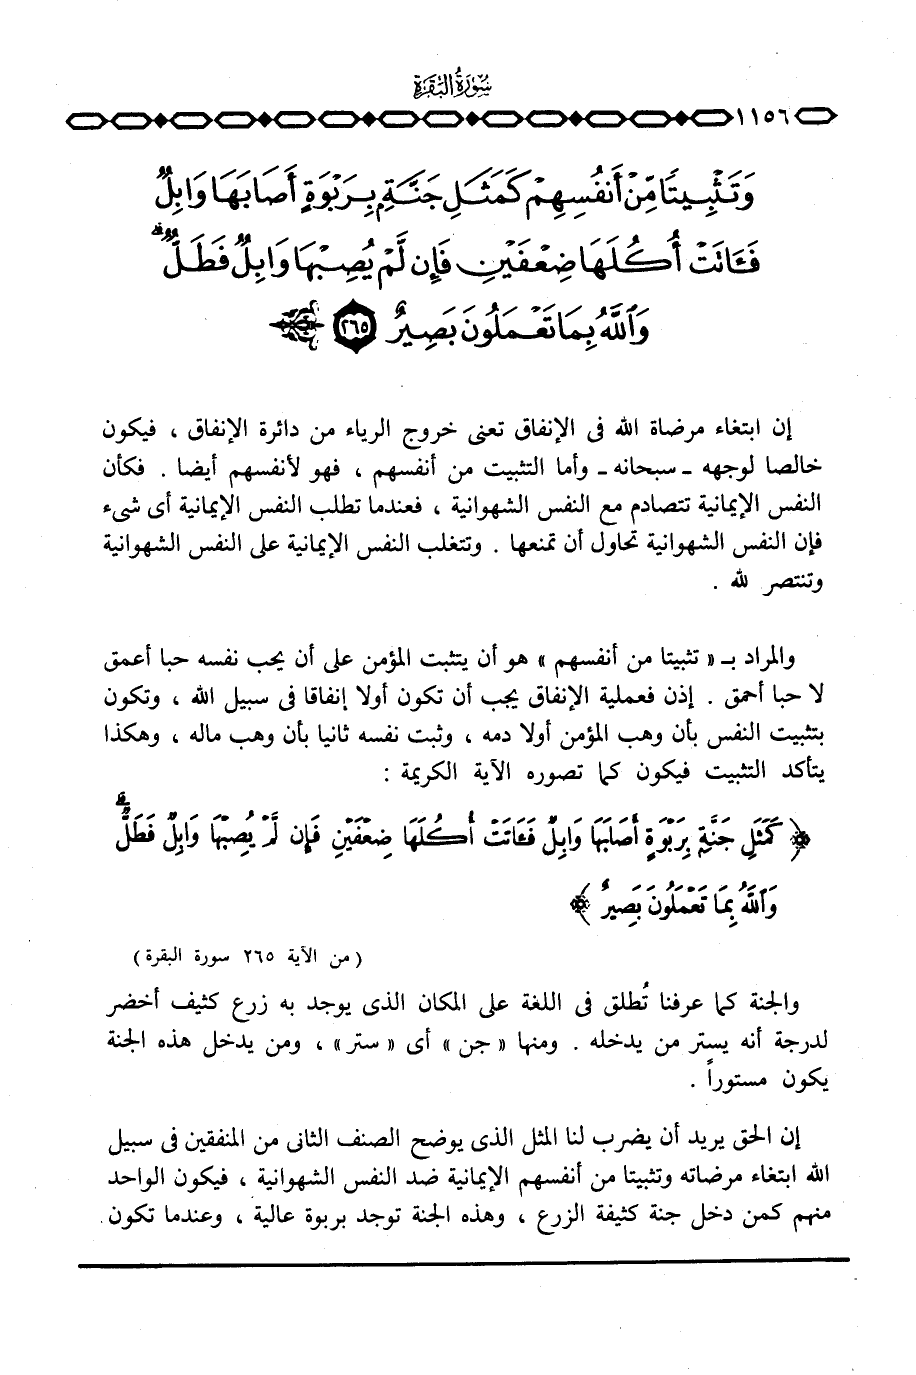 سُورَةُ الْبَقَرَةِ
١١٥٦
وَتَثْبِيتًا مِّنْ أَنفُسِهِمْ كَمَثَلِ جَنَّةٍ بِرَبْوَةٍ أَصَابَهَا وَابِلٌ
فَـَٔاتَتْ أُكُلَهَا ضِعْفَيْنِ فَإِن لَّمْ يُصِبْهَا وَابِلٌ فَطَلٌّ ۗ
وَٱللَّهُ بِمَا تَعْمَلُونَ بَصِيرٌ ٢٦٥
إن ابتغاء مرضاة الله فى الإنفاق تعنى خروج الرياء من دائرة الإنفاق ، فيكون
خالصا لوجهه ـ سبحانه ـ وأما التثبيت من أنفسهم ، فهو لأنفسهم أيضا . فكأن
النفس الإيمانية تتصادم مع النفس الشهوانية ، فعندما تطلب النفس الإيمانية أى شىء
فإن النفس الشهوانية تحاول أن تمنعها . وتتغلب النفس الإيمانية على النفس الشهوانية
وتنتصر لله .
والمراد بـ « تثبيتا من أنفسهم » هو أن يتثبت المؤمن على أن يحب نفسه حبا أعمق
لا حبا أحمق . إذن فعملية الإنفاق يجب أن تكون أولا إنفاقا فى سبيل الله ، وتكون
بتثبيت النفس بأن وهب المؤمن أولا دمه ، وثبت نفسه ثانيا بأن وهب ماله ، وهكذا
يتأكد التثبيت فيكون كما تصوره الآية الكريمة :
﴿ كَمَثَلِ جَنَّةٍ بِرَبْوَةٍ أَصَابَهَا وَابِلٌ فَـَٔاتَتْ أُكُلَهَا ضِعْفَيْنِ فَإِن لَّمْ يُصِبْهَا وَابِلٌ فَطَلٌّ ۗ
وَٱللَّهُ بِمَا تَعْمَلُونَ بَصِيرٌ ﴾
( من الآية ٢٦٥ سورة البقرة )
والجنة كما عرفنا تُطلق فى اللغة على المكان الذى يوجد به زرع كثيف أخضر
لدرجة أنه يستر من يدخله . ومنها « جن » أى « ستر » ، ومن يدخل هذه الجنة
يكون مستوراً .
إن الحق يريد أن يضرب لنا المثل الذى يوضح الصنف الثانى من المنفقين فى سبيل
الله ابتغاء مرضاته وتثبيتا من أنفسهم الإيمانية ضد النفس الشهوانية ، فيكون الواحد
منهم كمن دخل جنة كثيفة الزرع ، وهذه الجنة توجد بربوة عالية ، وعندما تكون